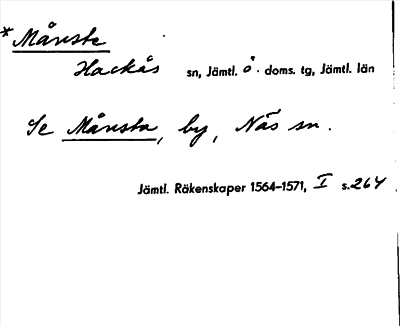 *Månsta
Hackås sn, Jämtl. ö. doms. tg, Jämtl. län
Se Månsta, by, Näs sn.
Jämtl. Räkenskaper 1564-1571, I s.264